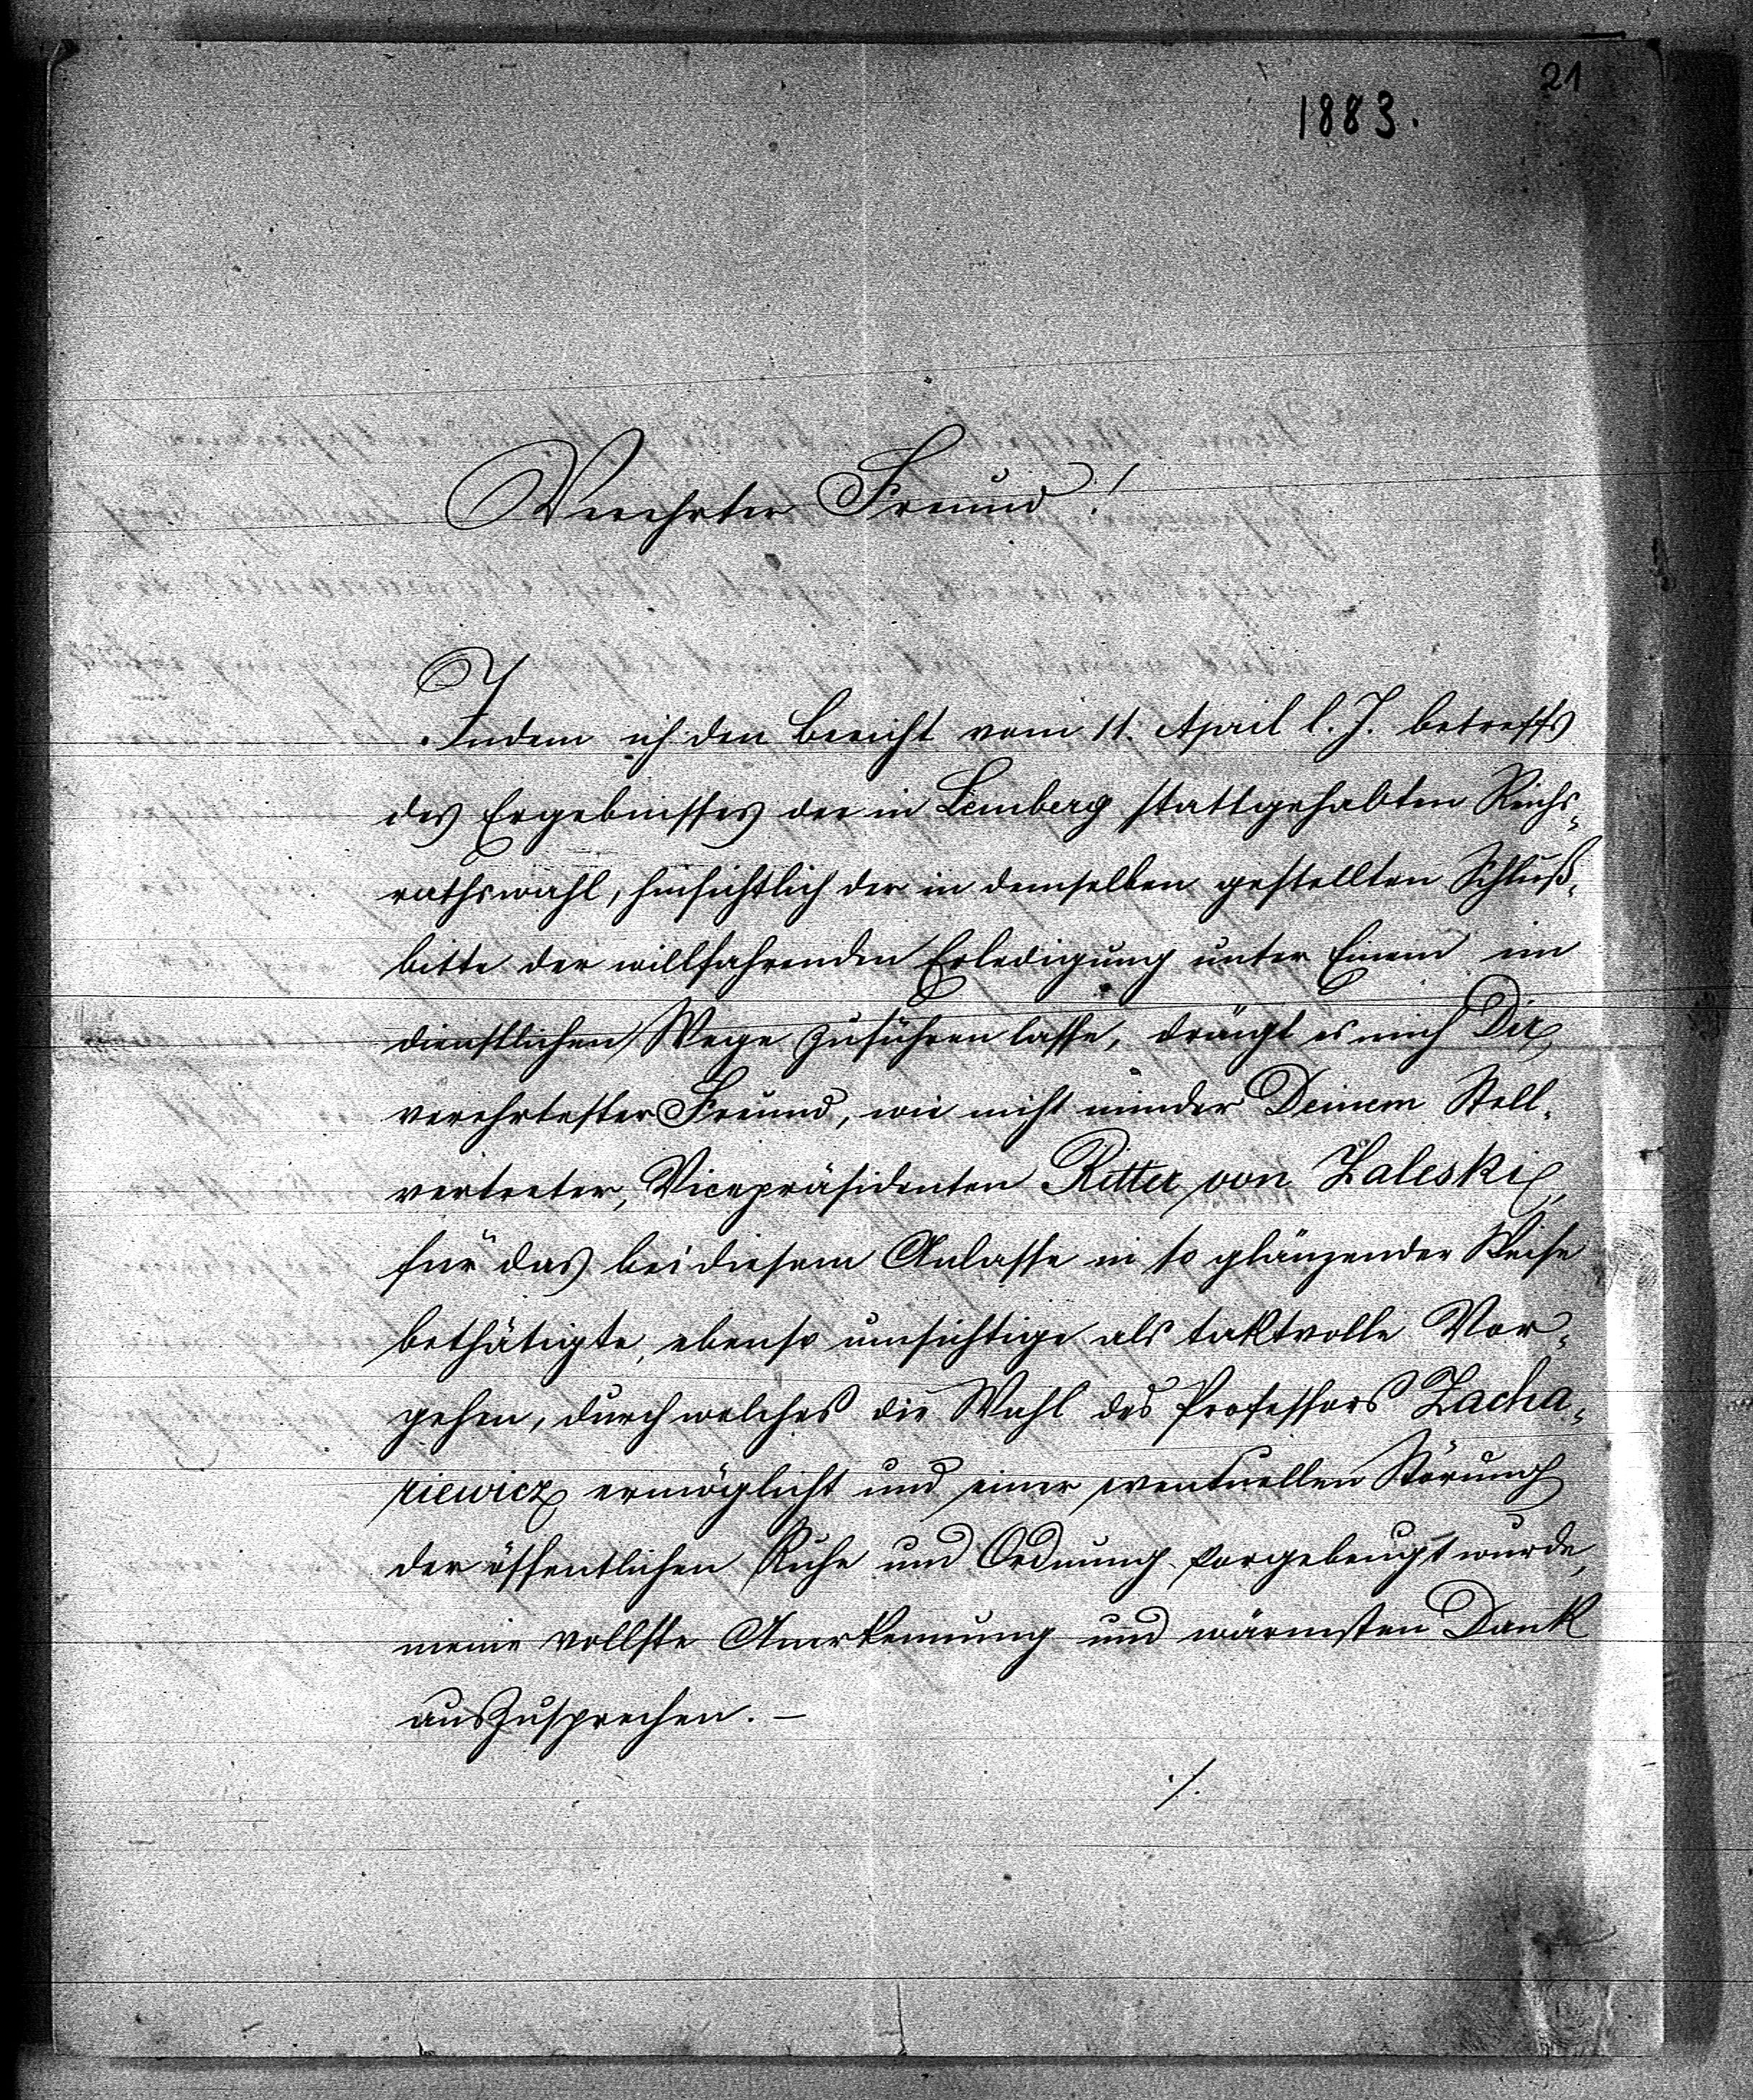 21
1883.
Verehrter Freund!
Indem ich den Bericht vom 11. April l. J. betreffs
des Ergebnisses der in Lemberg stattgehabten Reichs-
rathswahl, hinsichtlich der in demselben gestellten Schluß-
bitte der willfahrenden Erledigung unter Einem im
dienstlichen Wege zuführen lasse, drängt es mich Dir,
verehrtester Freund, wie nicht minder Deinem Stell-
vertreter, Vicepräsidenten Ritter von Zaleski,
für das bei diesem Anlasse in so glänzender Weise
bethätigte, ebenso umsichtige als taktvolle Vor-
gehen, durch welches die Wahl des Professors Zacha-
riewicz ermöglicht und einer eventuellen Störung
der öffentlichen Ruhe und Ordnung vorgebeugt wurde,
meine vollste Anerkennung und wärmsten Dank
auszusprechen. –
./.